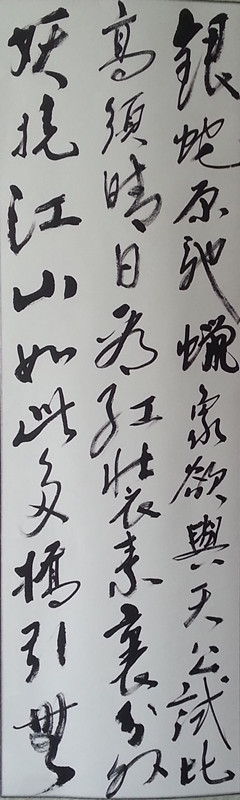 銀蛇原馳蠟象欲與天公試比
高須晴日看紅裝素裹分外
妖嬈江山如此多嬌引無